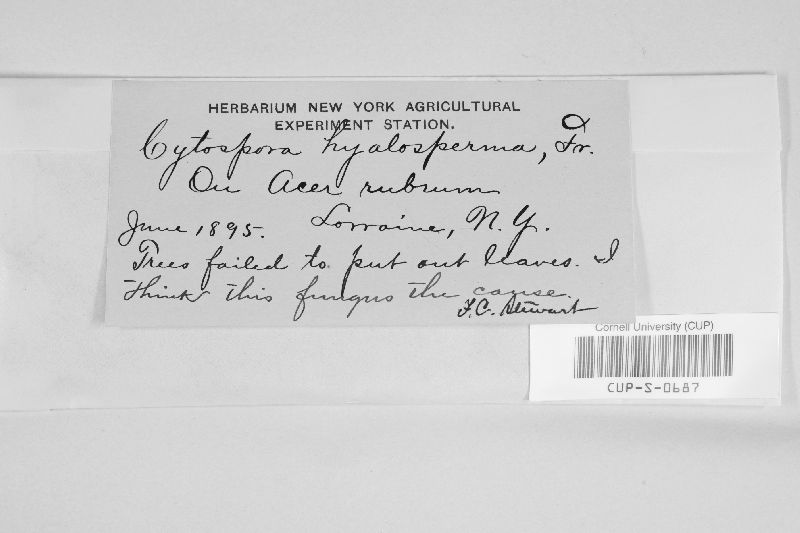 HERBARIUM NEW YORK AGRICULTURAL
EXPERIMENT STATION.
Cytospora hyalosperma, Fr.
On Acer rubrum
June 1895. Lorraine, N.Y.
Trees failed to put out leaves. I
think this fungus the cause.
F.C. Stewart
Cornell University (CUP)
CUP-S-0687